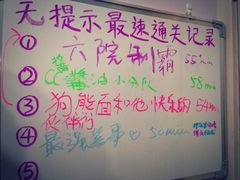 无提示最速通关记录
① 六院制霸 55min
② CC酱油小分队 58min
③ 狗熊面和他快乐的 54min
伙伴们
④ 最强
50min
⑤